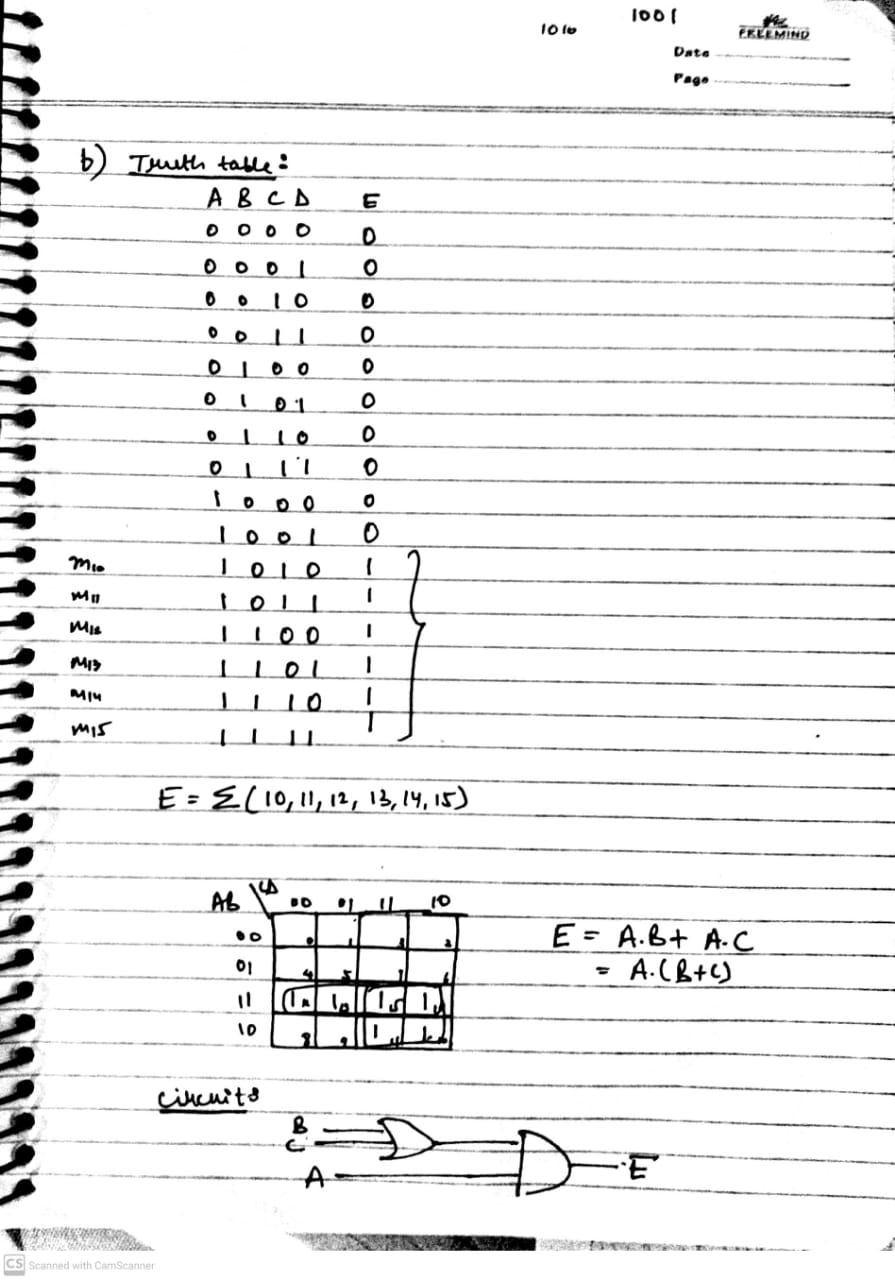 1001
1010
FREEMIND
Date
Page
b) Truth table:
A B C D E
0 0 0 0 0
0 0 0 1 0
0 0 1 0 0
0 0 1 1 0
0 1 0 0 0
0 1 0 1 0
0 1 1 0 0
0 1 1 1 0
1 0 0 0 0
1 0 0 1 0
m10 1 0 1 0 1
m11 1 0 1 1 1
m12 1 1 0 0 1
m13 1 1 0 1 1
m14 1 1 1 0 1
m15 1 1 1 1 1
E = Σ(10, 11, 12, 13, 14, 15)
AB \ CD 00 01 11 10
00 0 1 3 2
01 4 5 7 6
11 1 12 1 13 1 15 1 14
10 8 9 1 11 1 10
E = A.B + A.C
= A.(B+C)
Circuit:
B
C
A
E
CS Scanned with CamScanner